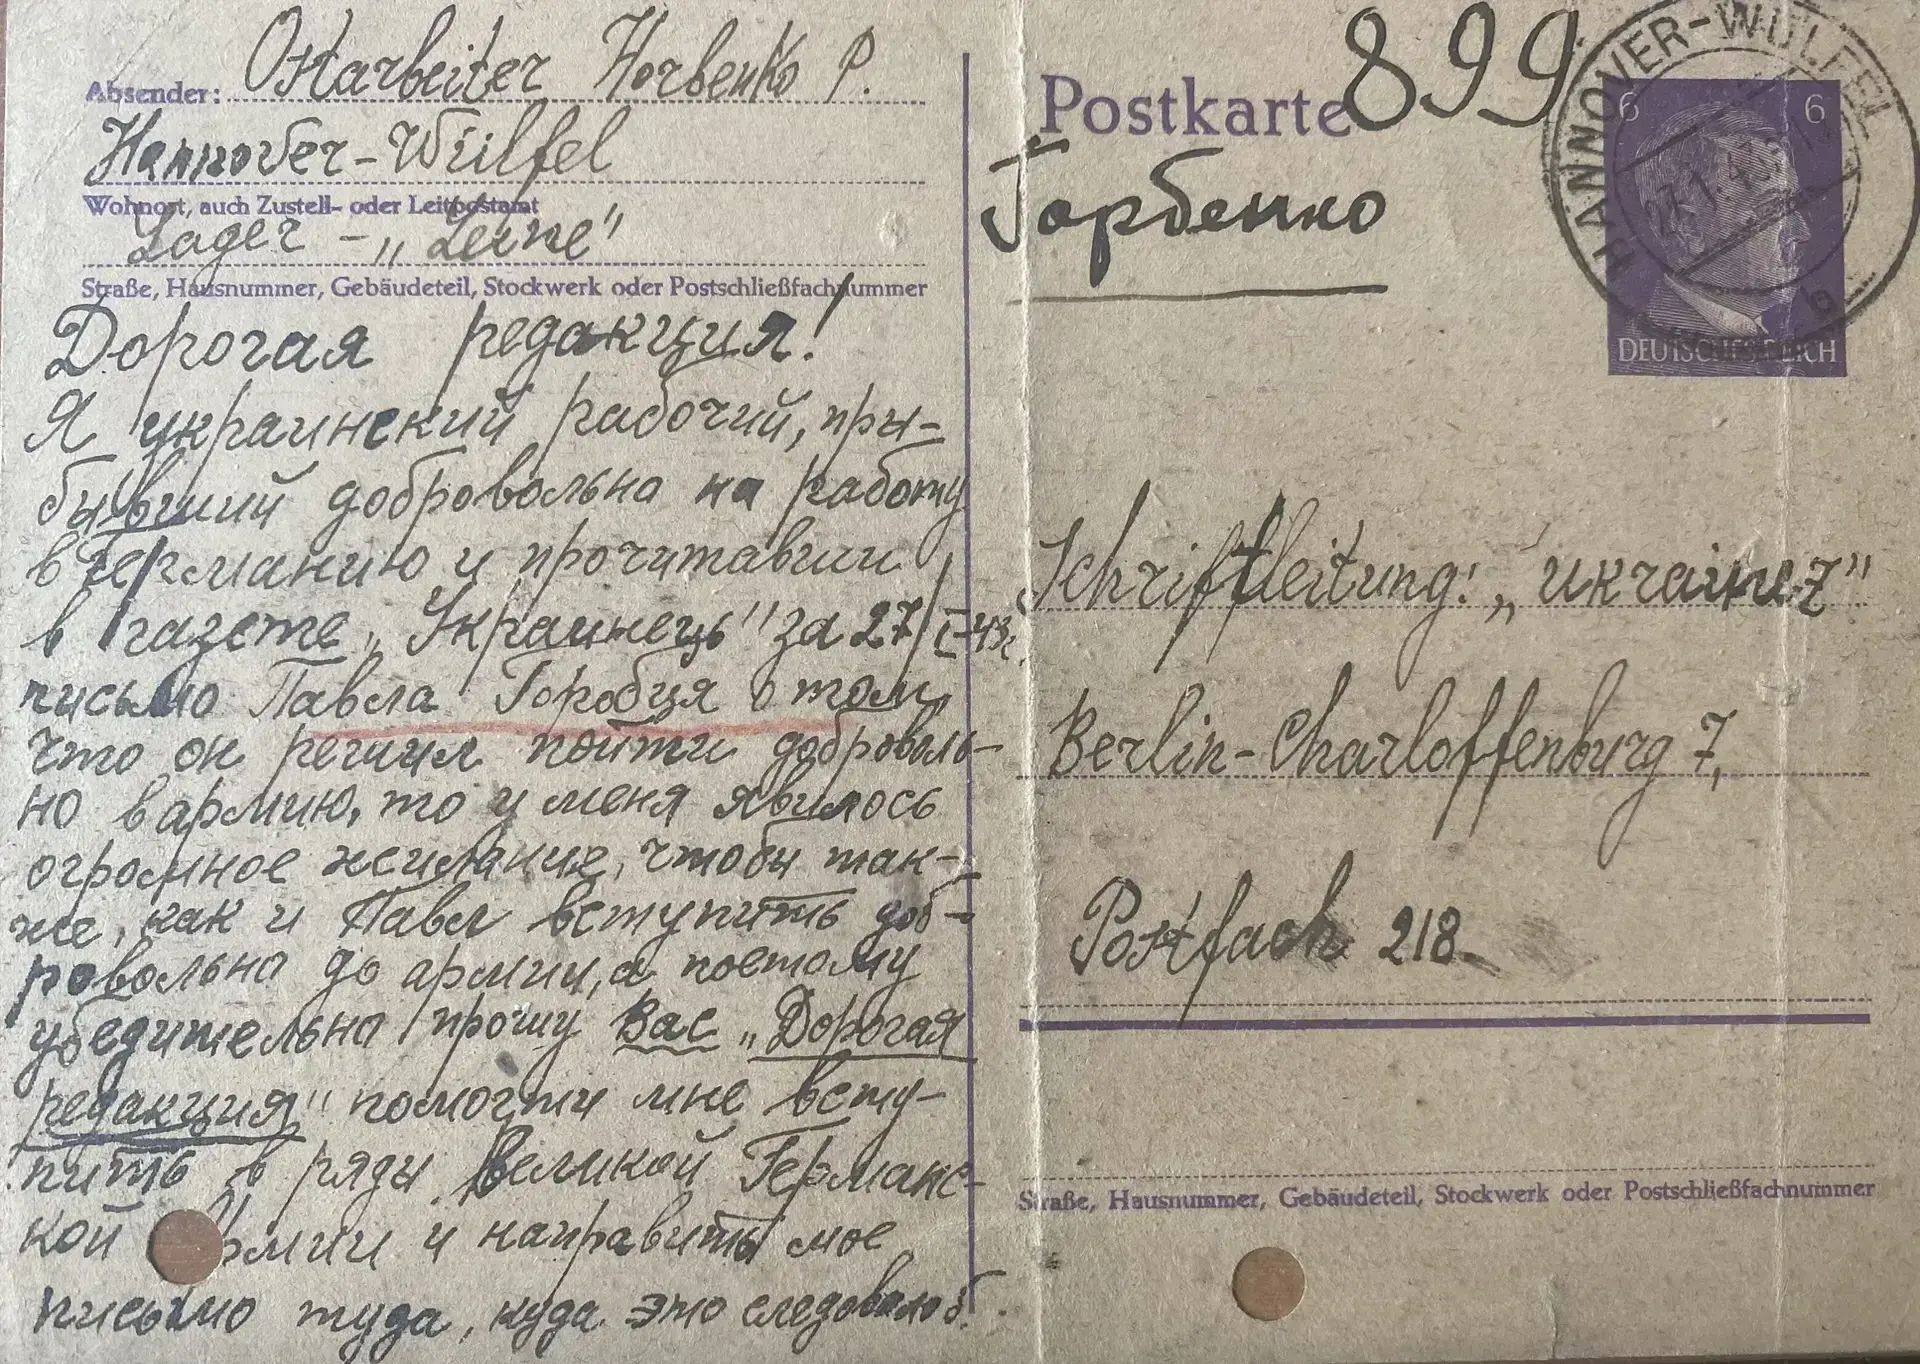 Absender: Ostarbeiter Horbenko P.
Hannover-Wülfel
Wohnort, auch Zustell- oder Leitpostamt
Lager - „Leine"
Straße, Hausnummer, Gebäudeteil, Stockwerk oder Postschließfachnummer
Дорогая редакция!
Я украинский рабочий, при-
бывший добровольно на работу
в Германию и прочитавши
в газете „Українець" за 27/I-43г.
письмо Павла Горобця о том,
что он решил пойти доброволь-
но в армию, то у меня явилось
огромное желание, чтобы так-
же, как и Павл вступить доб-
ровольно до армии, а поетому
убедительно прошу Вас „Дорогая
редакция" помогти мне всту-
пить в ряды Великой Германс-
кой Армии и направить мое
письмо туда, куда это следовало б.
Postkarte
899
Горбенко
HANNOVER-WÜLFEL
b
6 6
DEUTSCHES REICH
Schriftleitung: „Ukrainez"
Berlin-Charlottenburg 7,
Postfach 218
Straße, Hausnummer, Gebäudeteil, Stockwerk oder Postschließfachnummer